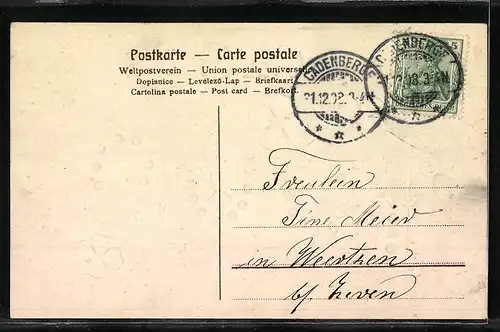 Postkarte — Carte postale
Weltpostverein — Union postale universelle
Dopisnice — Levelező-Lap — Briefkaart
Cartolina postale — Post card — Brefkort
CADENBERGE
31.12.08.3-4N
CADENBERGE
12.08.3-4N
5
Fräulein
Tine Meier
in Weertzen
bf. Zeven